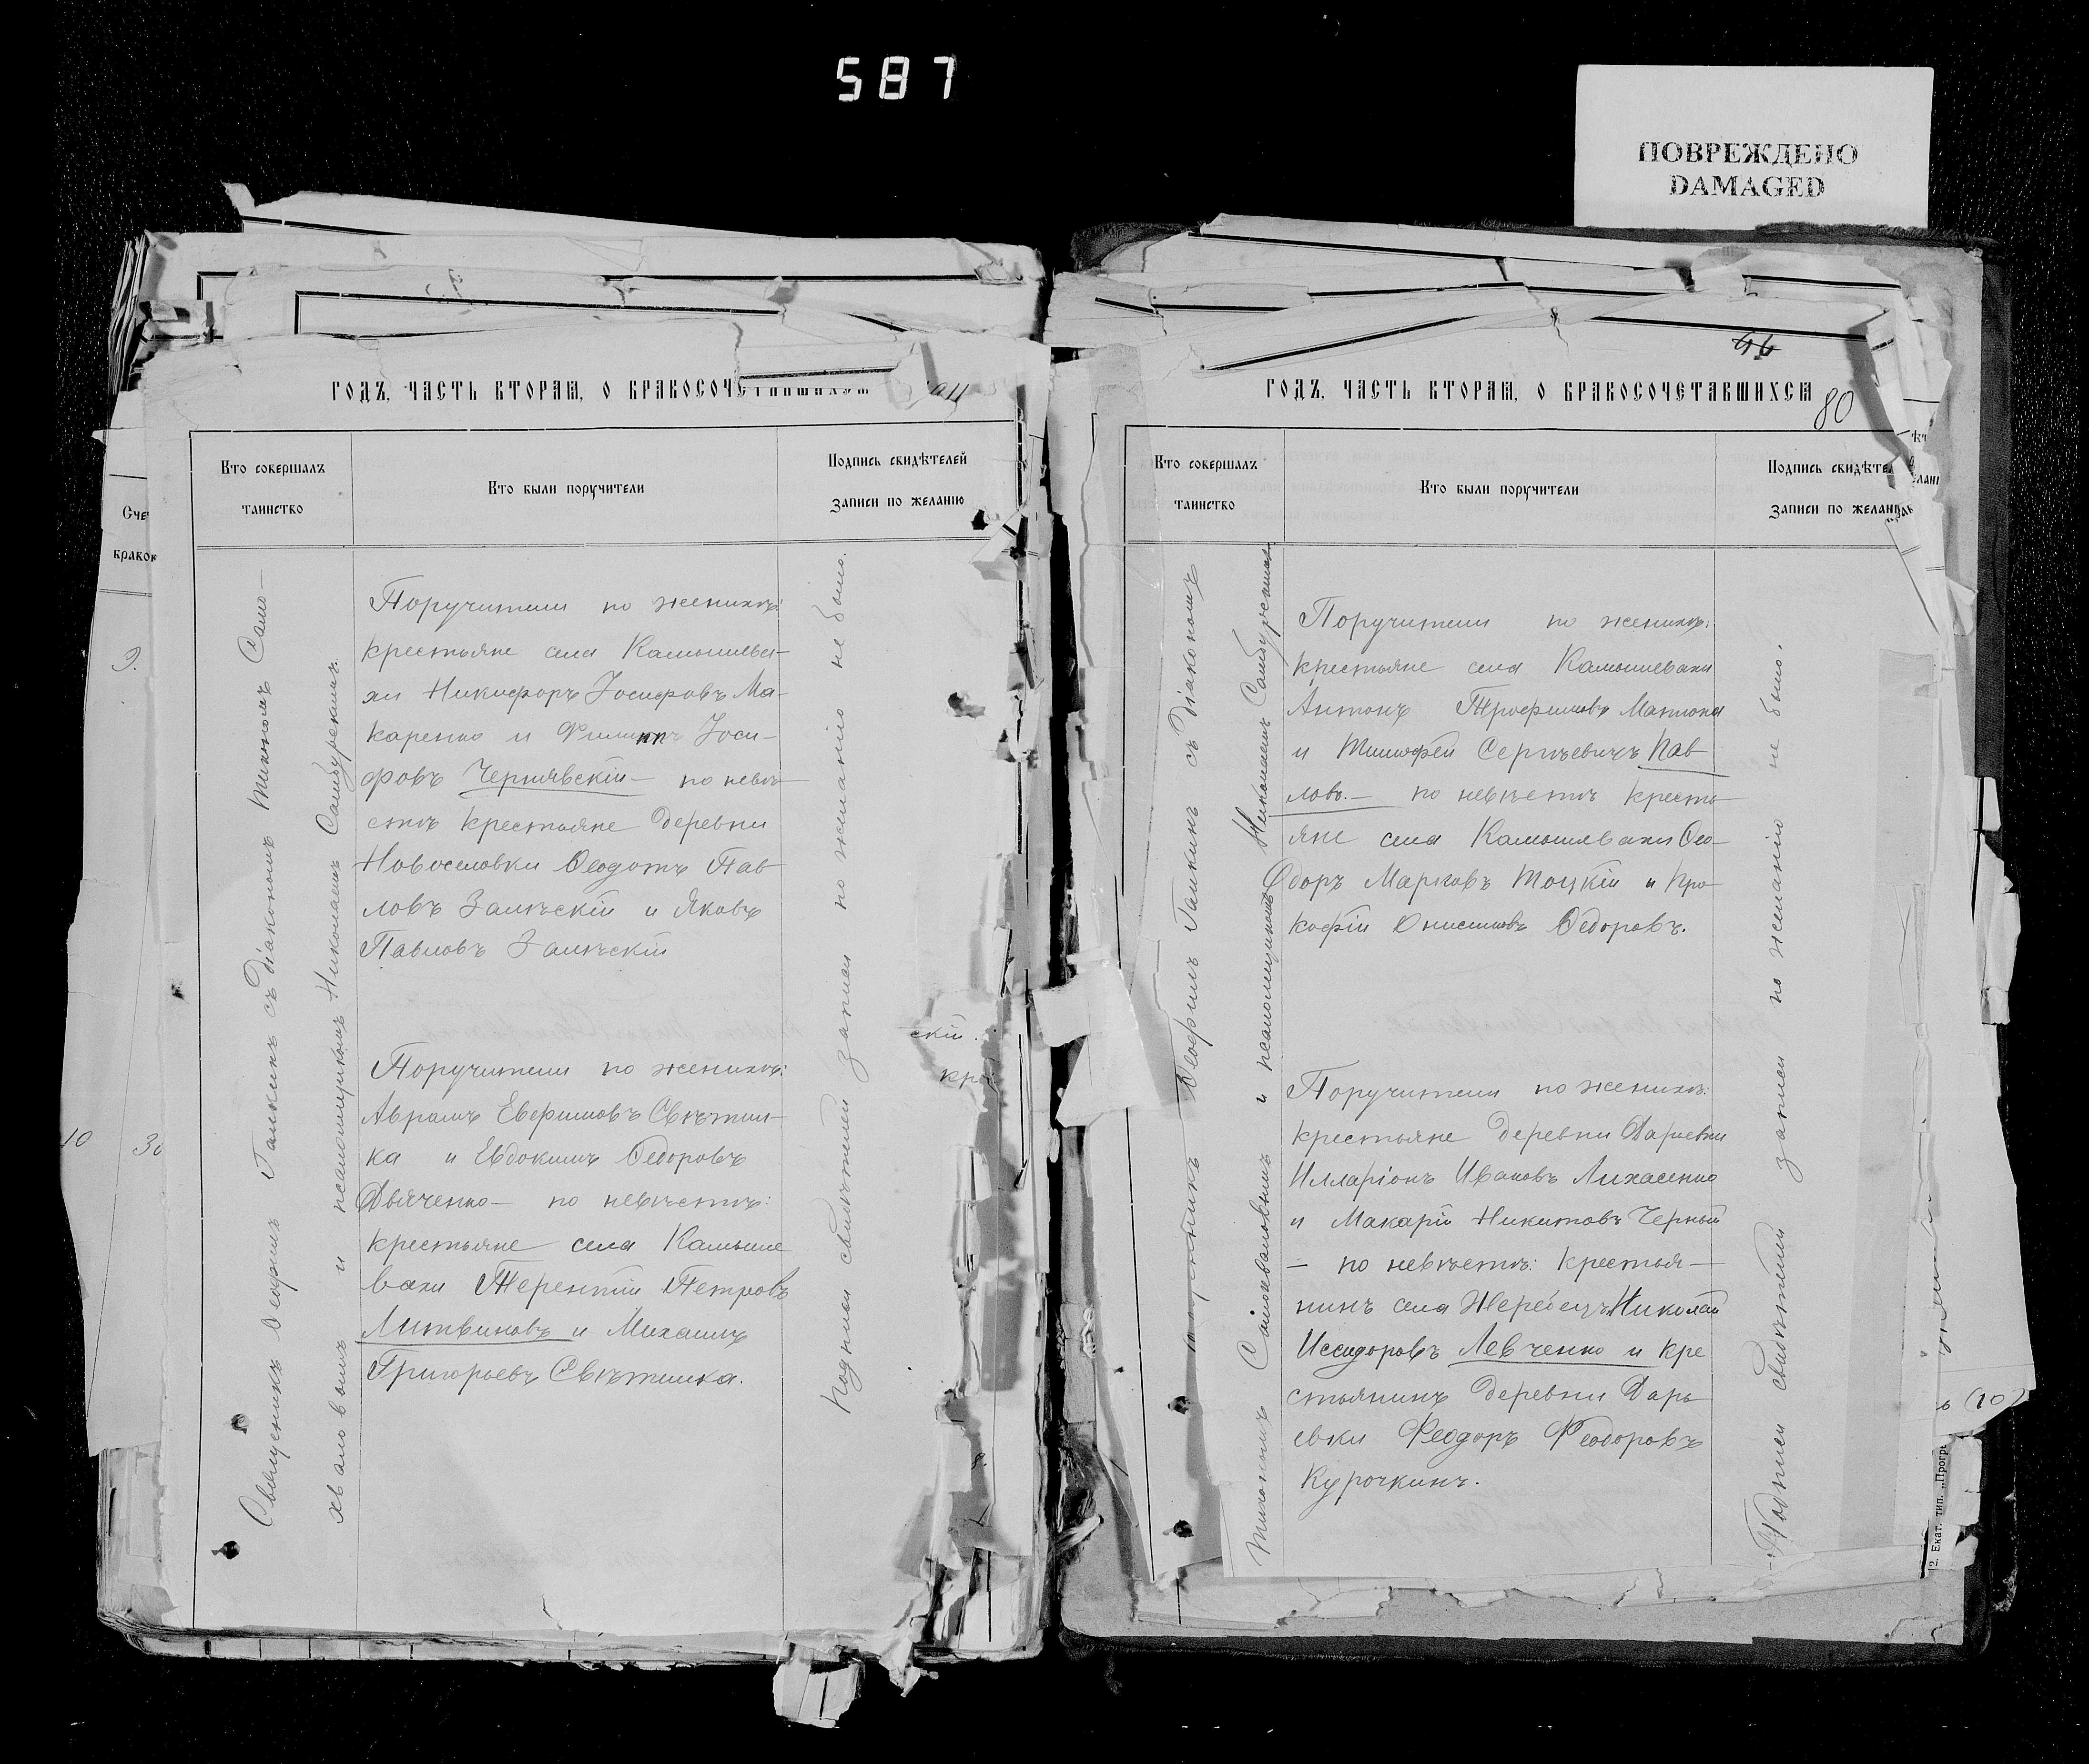 587
ПОВРЕЖДЕНО
DAMAGED
ГОДЪ, ЧАСТЬ ВТОРАЯ, О БРАКОСОЧЕТАВШИХСЯ
Счет
браков
9.
10
30
Кто совершалъ
таинство
Кто были поручители
Подпись свидѣтелей
записи по желанію
Священникъ Ѳеофилъ Галкинъ съ діакономъ Тихономъ Само-
хваловымъ и псаломщикомъ Николаемъ Самбурскимъ.
Поручители по женихѣ:
крестьяне села Камышева-
хи Никифоръ Іосифовъ Ма-
каренко и Филиппъ Іоси-
фовъ Чернявскій — по невѣ-
стѣ крестьяне деревни
Новоселовки Ѳеодотъ Пав
ловъ Залѣскій и Яковъ
Павловъ Залѣскій
Поручители по женихѣ:
Аврамъ Евфимовъ Свѣтли-
ка и Евдокимъ Ѳедоровъ
Дьяченко — по невѣстѣ:
крестьяне села Камыше
вахи Терентій Петровъ
Литвиновъ и Михаилъ
Григорьевъ Свѣтлика.
Подписи свидѣтелей записи по желанію не было.
скій.
кре
46
ГОДЪ, ЧАСТЬ ВТОРАЯ, О БРАКОСОЧЕТАВШИХСЯ
80
Кто совершалъ
таинство
Кто были поручители
Подпись свидѣтел
записи по желанію
Ѳеофилъ Галкинъ съ діакономъ
Тихономъ Самохваловымъ и псаломщикомъ Николаемъ Самбурскимъ
Поручители по женихѣ:
крестьяне села Камышевахи
Антонъ Трофимовъ
и Тимофей Сергѣевичъ Пав
ловъ. — по невѣстѣ кресть
яне села Камышевахи Ѳео-
доръ Марковъ Тоцкій и Про
кофій Онисимовъ Ѳедоровъ.
Поручители по женихѣ:
крестьяне деревни Дарьевки
Илларіонъ Ивановъ Лихасенко
и Макарій Никитовъ Черный
— по невѣстѣ: крестья—
нинъ села Жеребецъ Николай
Исидоровъ Левченко и кре
стьянинъ деревни Дарь
евки Феодоръ Феодоровъ
Курочкинъ.
Подписи свидѣтелей записи по желанію не было.
(10)
2. Екат. тип. „Прогр